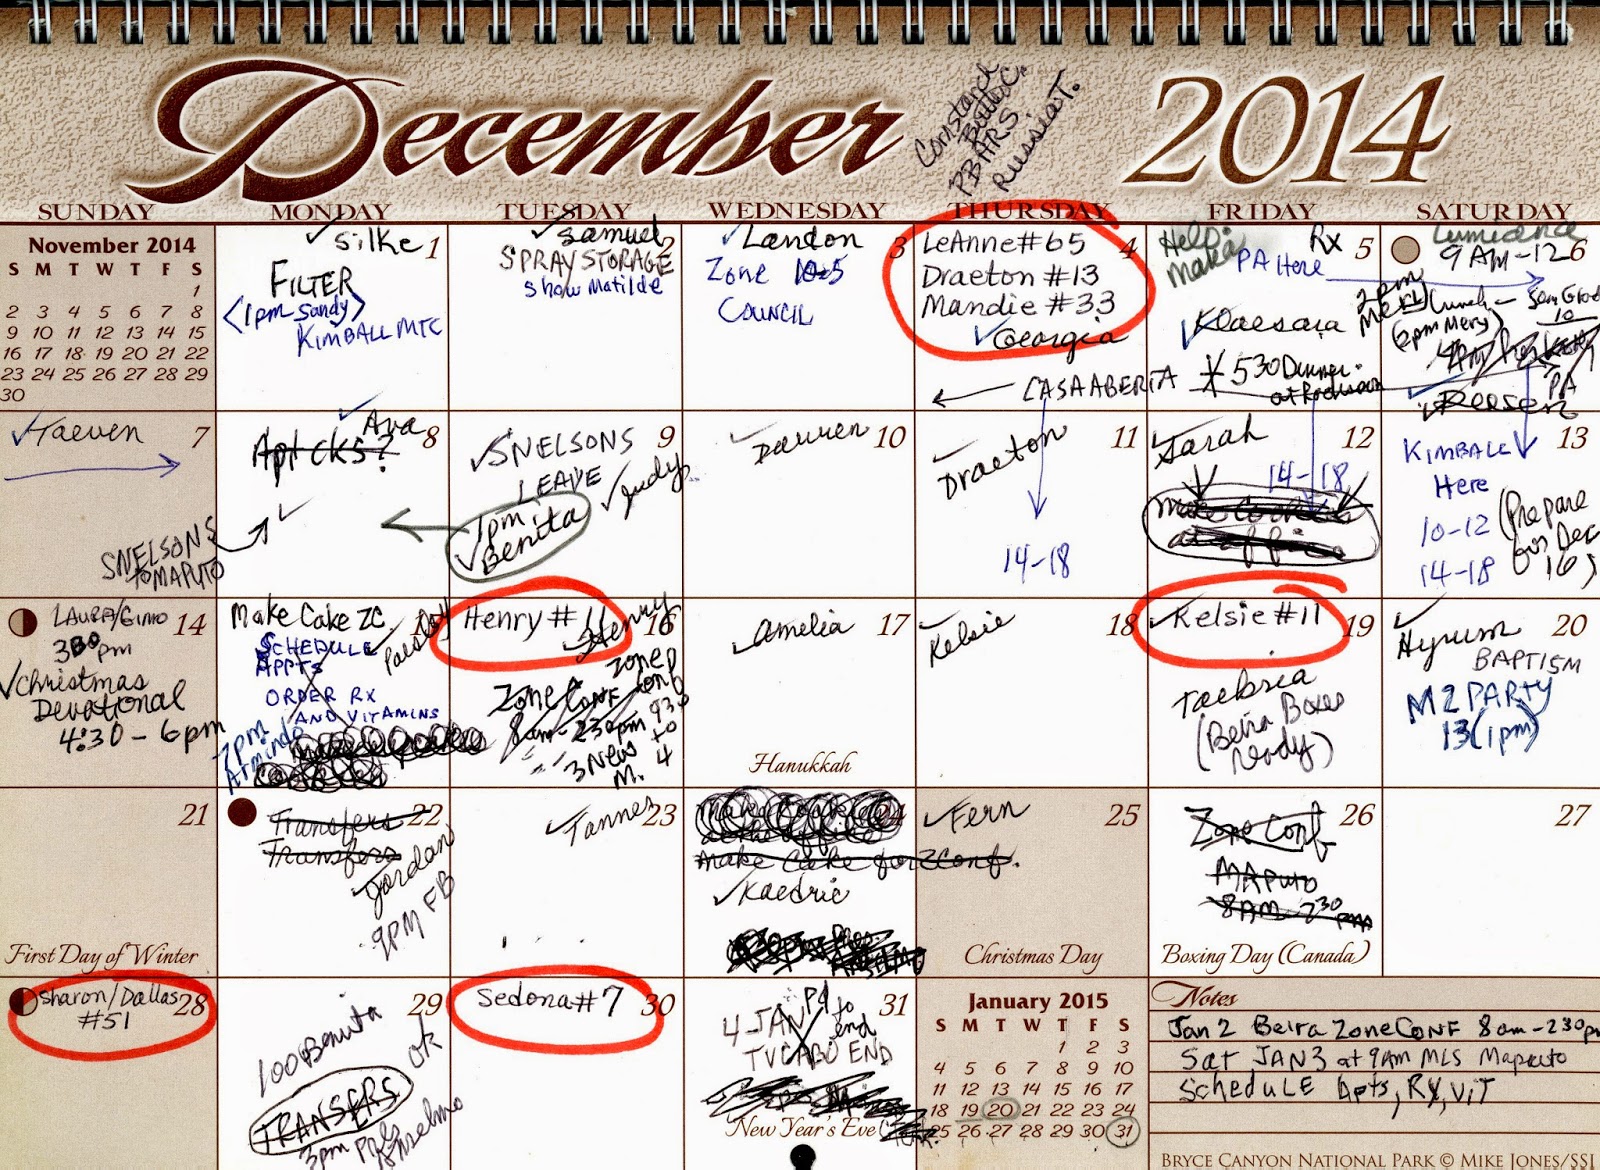 December
2014
Cornstarch
PBARS
SUNDAY MONDAY TUESDAY WEDNESDAY THURSDAY FRIDAY SATURDAY
November 2014
S M T W T F S
1
2 3 4 5 6 7 8
9 10 11 12 13 14 15
16 17 18 19 20 21 22
23 24 25 26 27 28 29
30
✓ Silke 1
FILTER
<1pm Sandy>
KIMBALL MTC
✓ Samuel 2
SPRAY STORAGE
Show Matilde
✓ Landon 3
Zone 10-5
COUNCIL
LeAnne #65 4
Draeton #13
Mandie #33
✓ Georgia
← CASA ABERTA
Help Rx 5
PA Here
✓ Klaesara
530 Dinner
Lumiana 6
9 AM-12
Lunch
(2pm Mery)
10
PA
✓ Reesen
✓ Taeven 7
SNELSONS
TO MAPUTO
✓ Ava 8
Apt cks?
✓ SNELSONS 9
LEAVE
✓ Judy
1pm
✓ Benita
✓ Darren 10
✓ Draeton 11
14-18
✓ Sarah 12
14-18
make cookies
at office
KIMBALL 13
Here
10-12
14-18
(Prepare
for Dec
16)
LAURA/GIMO 14
330 pm
✓ Christmas
Devotional
4:30 - 6pm
Make Cake ZC 15
SCHEDULE
APPTS
ORDER RX
AND VITAMINS
7pm
Armindo
Henry #11 16
✓ Henry
Zone Conf
8am-230pm
Zone
Conf
930
to
4
3 New
M.
✓ Amelia 17
Hanukkah
✓ Kelsie 18
✓ Kelsie #11 19
Taebria
(Beira Boxes
ready)
✓ Hyrum 20
BAPTISM
M2 PARTY
13 (1pm)
21
First Day of Winter
Transfers 22
Transfers
✓ Jordan
9PM FB
✓ Tanner 23
24
make cake for Z Conf.
✓ Kaedric
✓ Fern 25
Christmas Day
Zone Conf 26
Maputo
8AM-230 PM
Boxing Day (Canada)
27
Sharon/Dallas 28
#51
29
100 Benita
OK
TRANSFERS
3pm Pres
Anselmo
Sedona #7 30
31
4-JAN Pd to
end
TVCABO END
New Year's Eve
January 2015
S M T W T F S
1 2 3
4 5 6 7 8 9 10
11 12 13 14 15 16 17
18 19 20 21 22 23 24
25 26 27 28 29 30 31
Notes
Jan 2 Beira Zone CONF 8am-230pm
Sat JAN 3 at 9am MLS Maputo
Schedule Apts, RX, ViT
BRYCE CANYON NATIONAL PARK © MIKE JONES/SSI